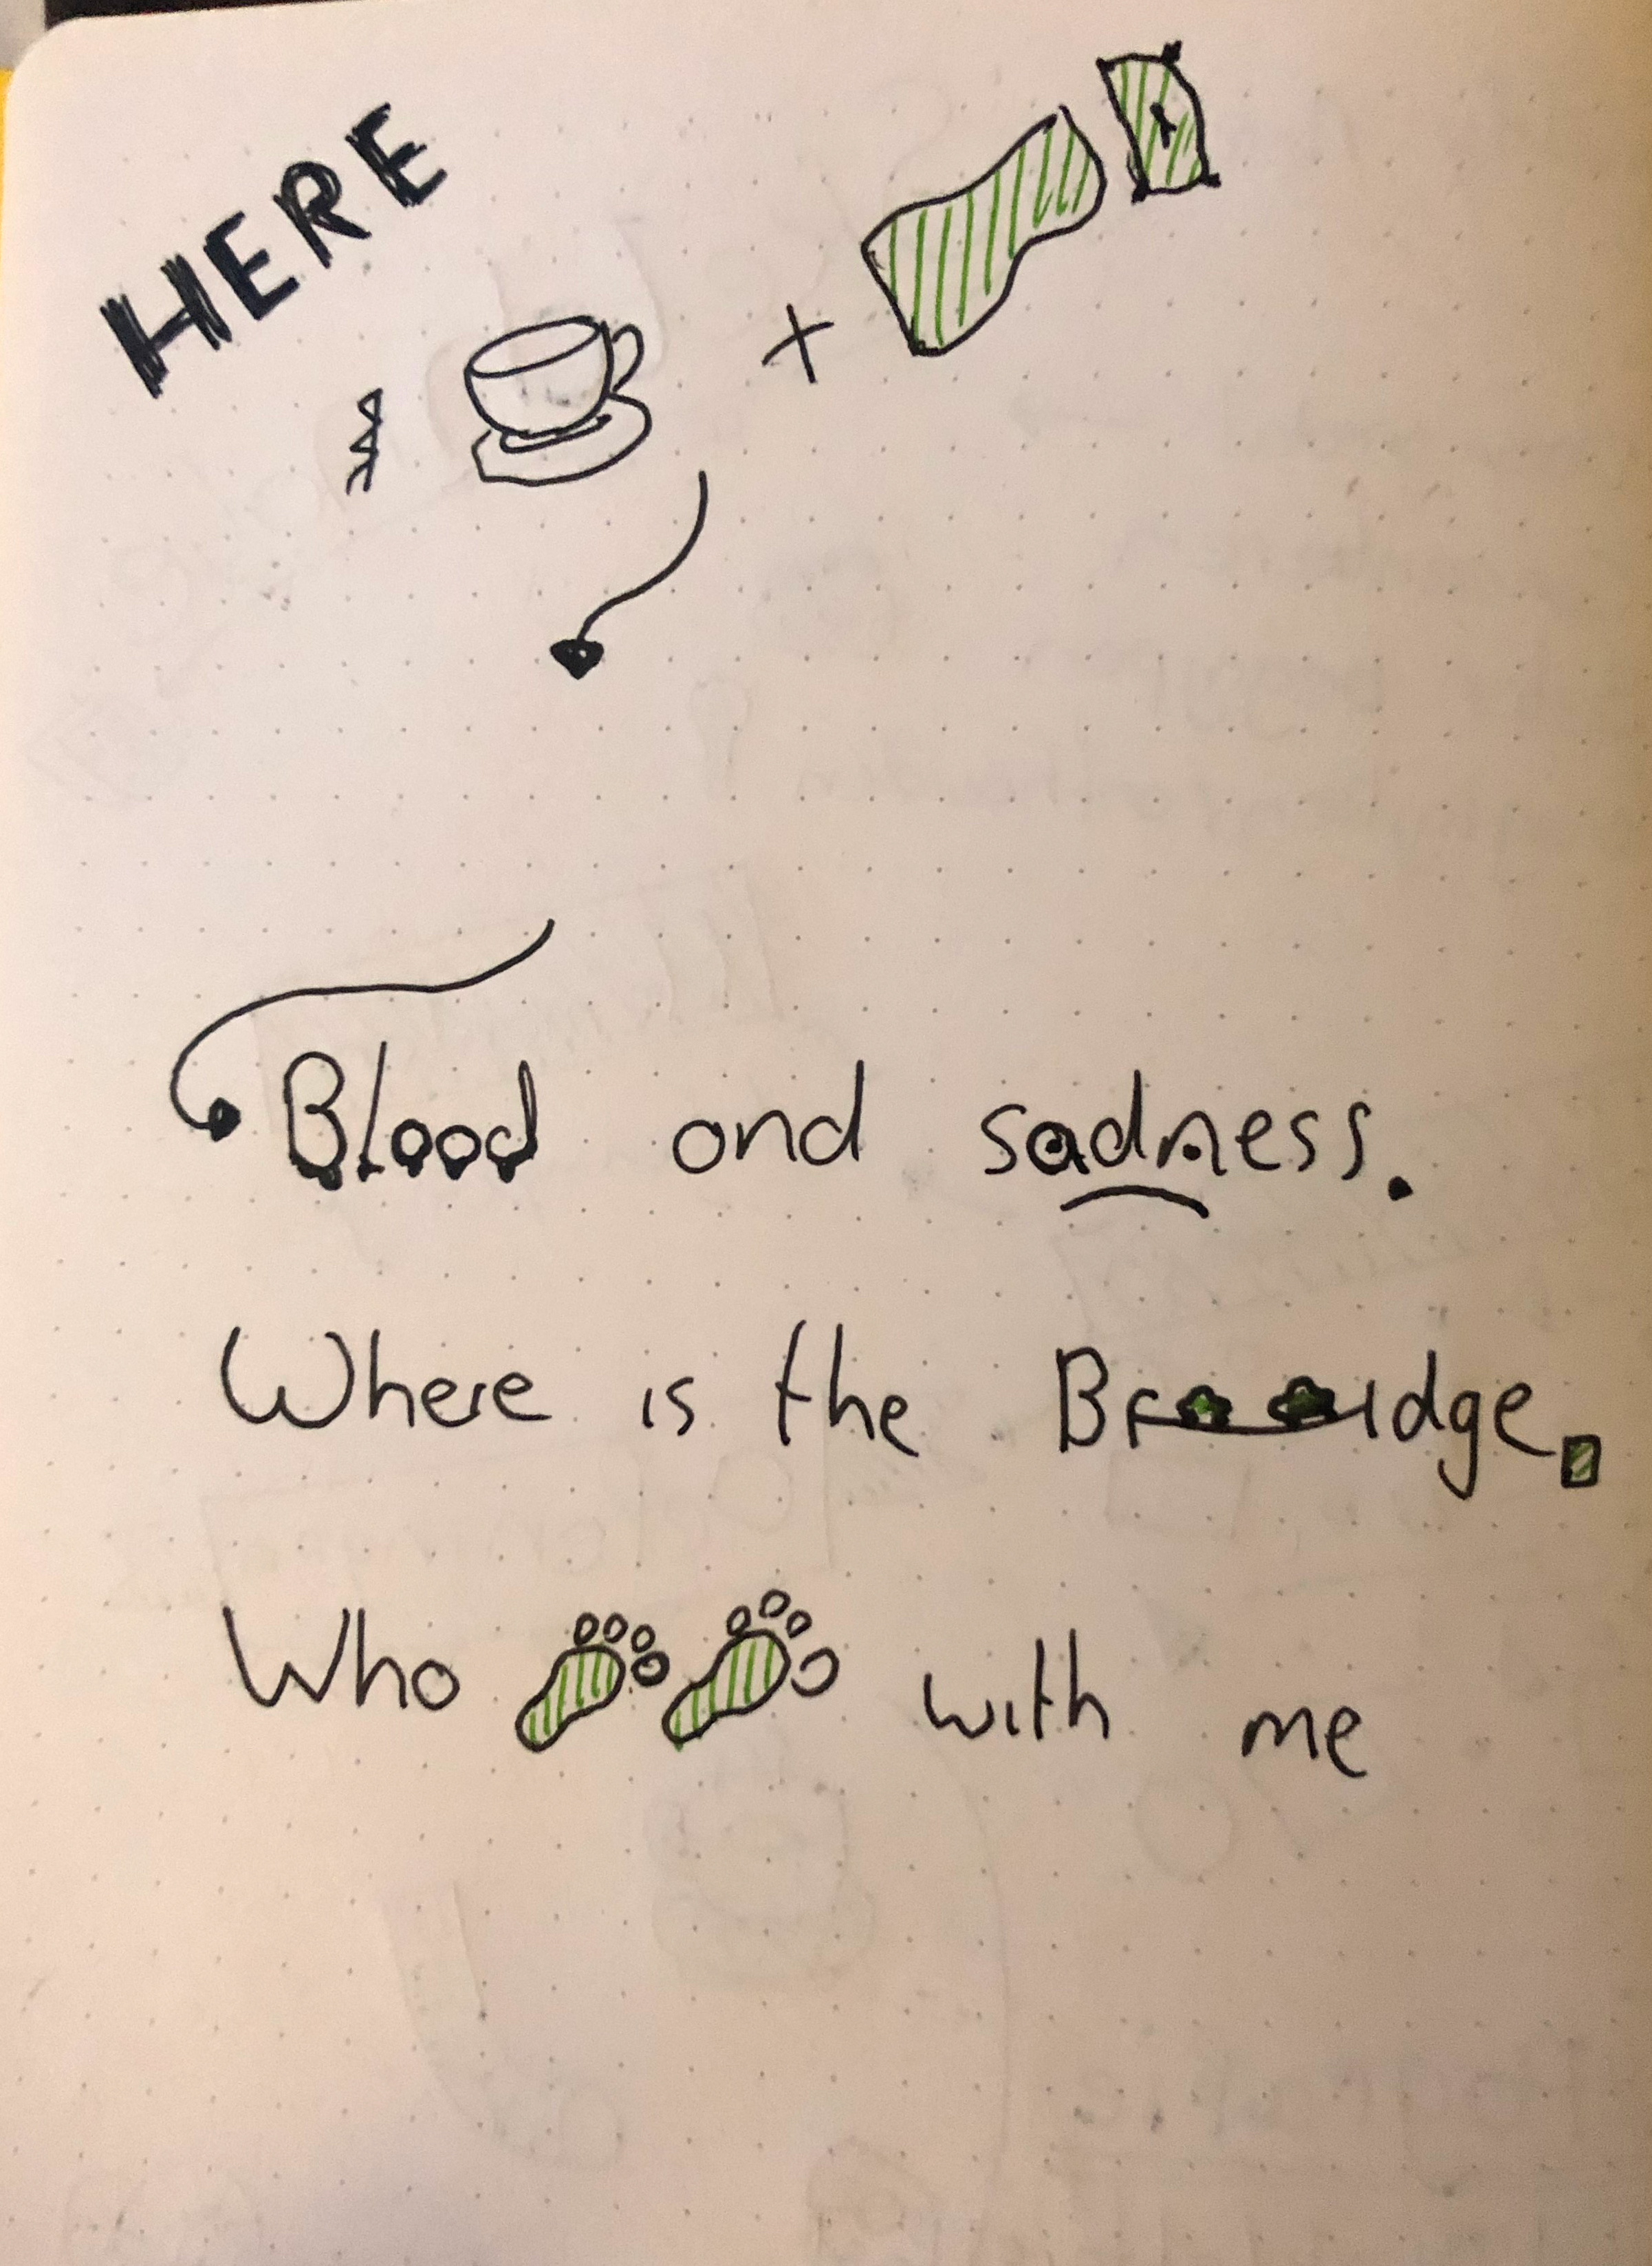 HERE
+
Blood and sadness.
Where is the Bridge.
Who with me